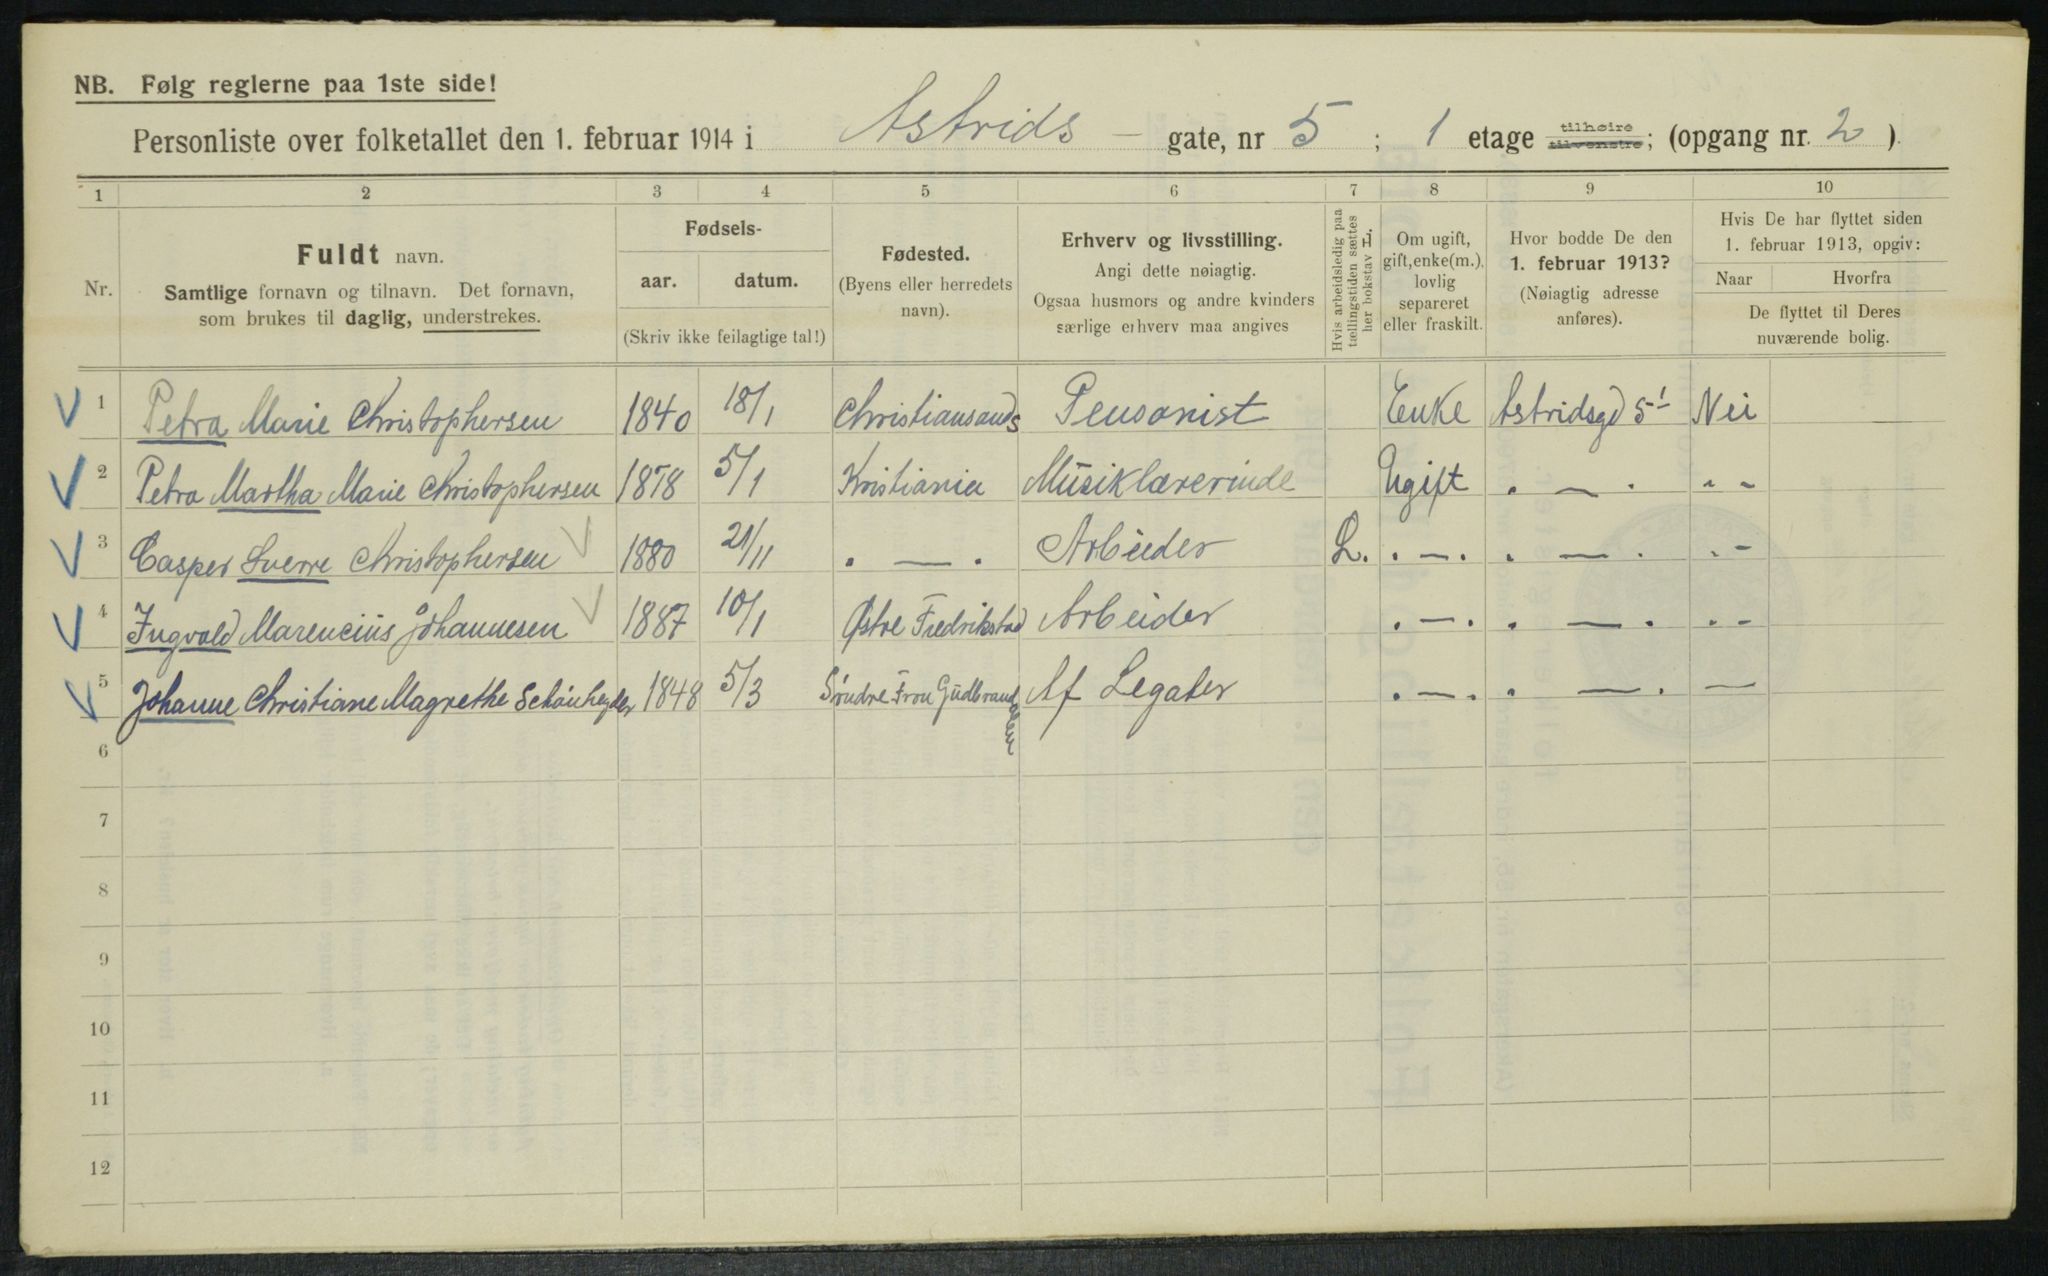 NB. Følg reglerne paa 1ste side!
Personliste over folketallet den 1. februar 1914 i Astrids - gate, nr 5 ; 1 etage tilhøire tilvenstre; (opgang nr. 2 ).
1 2 3 4 5 6 7 8 9 10
Nr.
Fuldt navn.
Samtlige fornavn og tilnavn. Det fornavn,
som brukes til daglig, understrekes.
Fødsels-
aar. datum.
(Skriv ikke feilagtige tal!)
Fødested.
(Byens eller herredets
navn).
Erhverv og livsstilling.
Angi dette nøiagtig.
Ogsaa husmors og andre kvinders
særlige erhverv maa angives
Hvis arbeidsledig paa
tællingstiden sættes
her bokstav L.
Om ugift,
gift, enke(m.),
lovlig
separeret
eller fraskilt.
Hvor bodde De den
1. februar 1913?
(Nøiagtig adresse
anføres).
Hvis De har flyttet siden
1. februar 1913, opgiv:
Naar Hvorfra
De flyttet til Deres
nuværende bolig.
1 Petra Marie Christophersen 1840 18/1 Christiansands Pensonist Enke Astridsgd 5 1 Nei
2 Petra Martha Marie Christophersen 1878 5/1 Kristiania Musiklærerinde Ugift . — . . . -
3 Casper Sverre Christophersen 1880 21/11 . — . Arbeider L. . — . . — . . . -
4 Ingvald Marencius Johannesen 1887 10/1 Østre Fredrikstad Arbeider . — . . — . . . -
5 Johanne Christiane Magrethe Schönheyder 1848 5/3 Søndre Fron Gudbrandsdalen Af Legater . — . . — . —
6
7
8
9
10
11
12